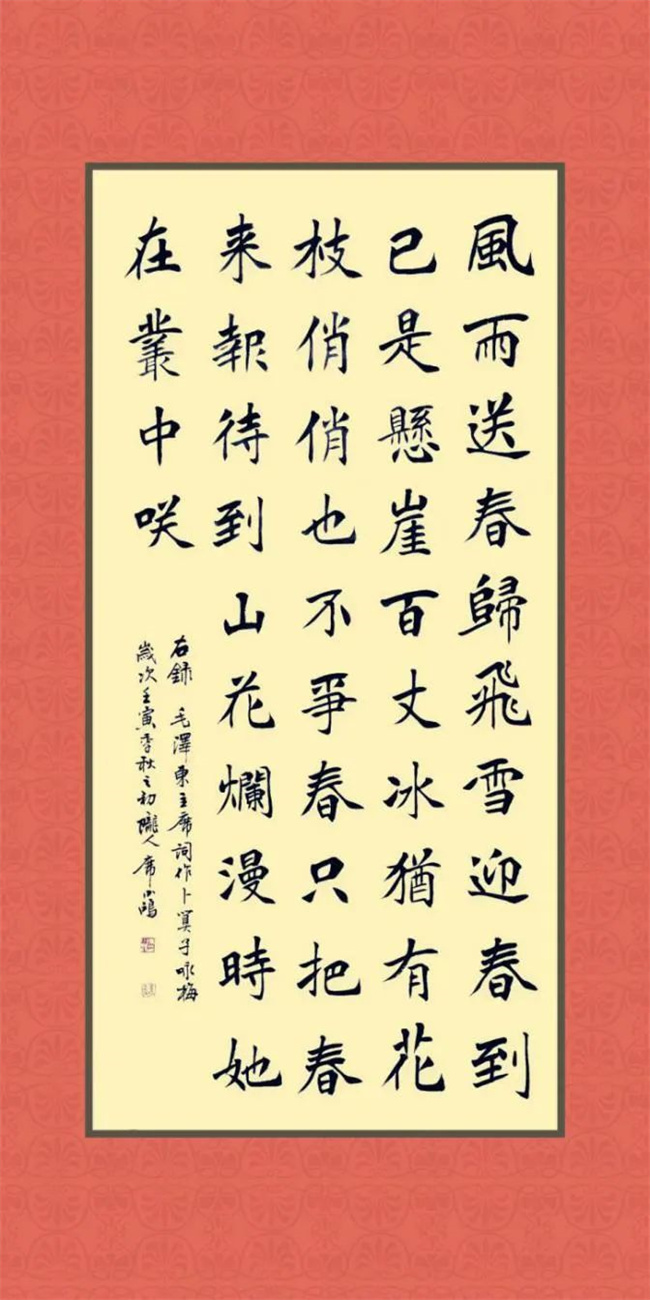 風雨送春歸飛雪迎春到
已是懸崖百丈冰猶有花
枝俏俏也不爭春只把春
来報待到山花爛漫時她
在叢中咲
右録 毛澤東主席詞作卜算子咏梅
歲次壬寅季秋之初隴人席小鴻